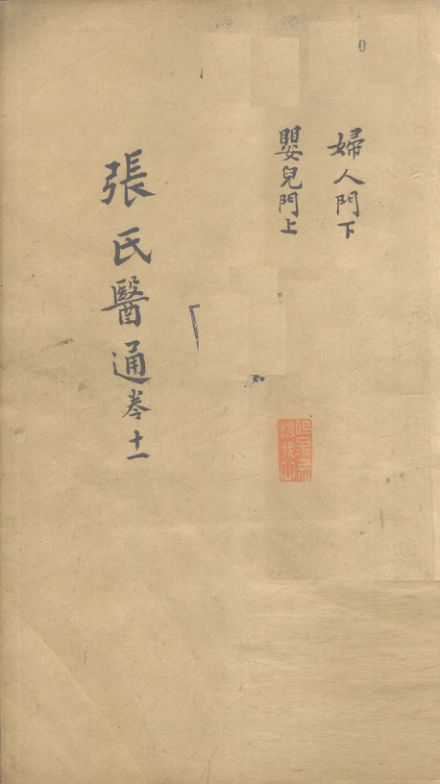 婦人門下
嬰兒門上
張氏醫通卷十一